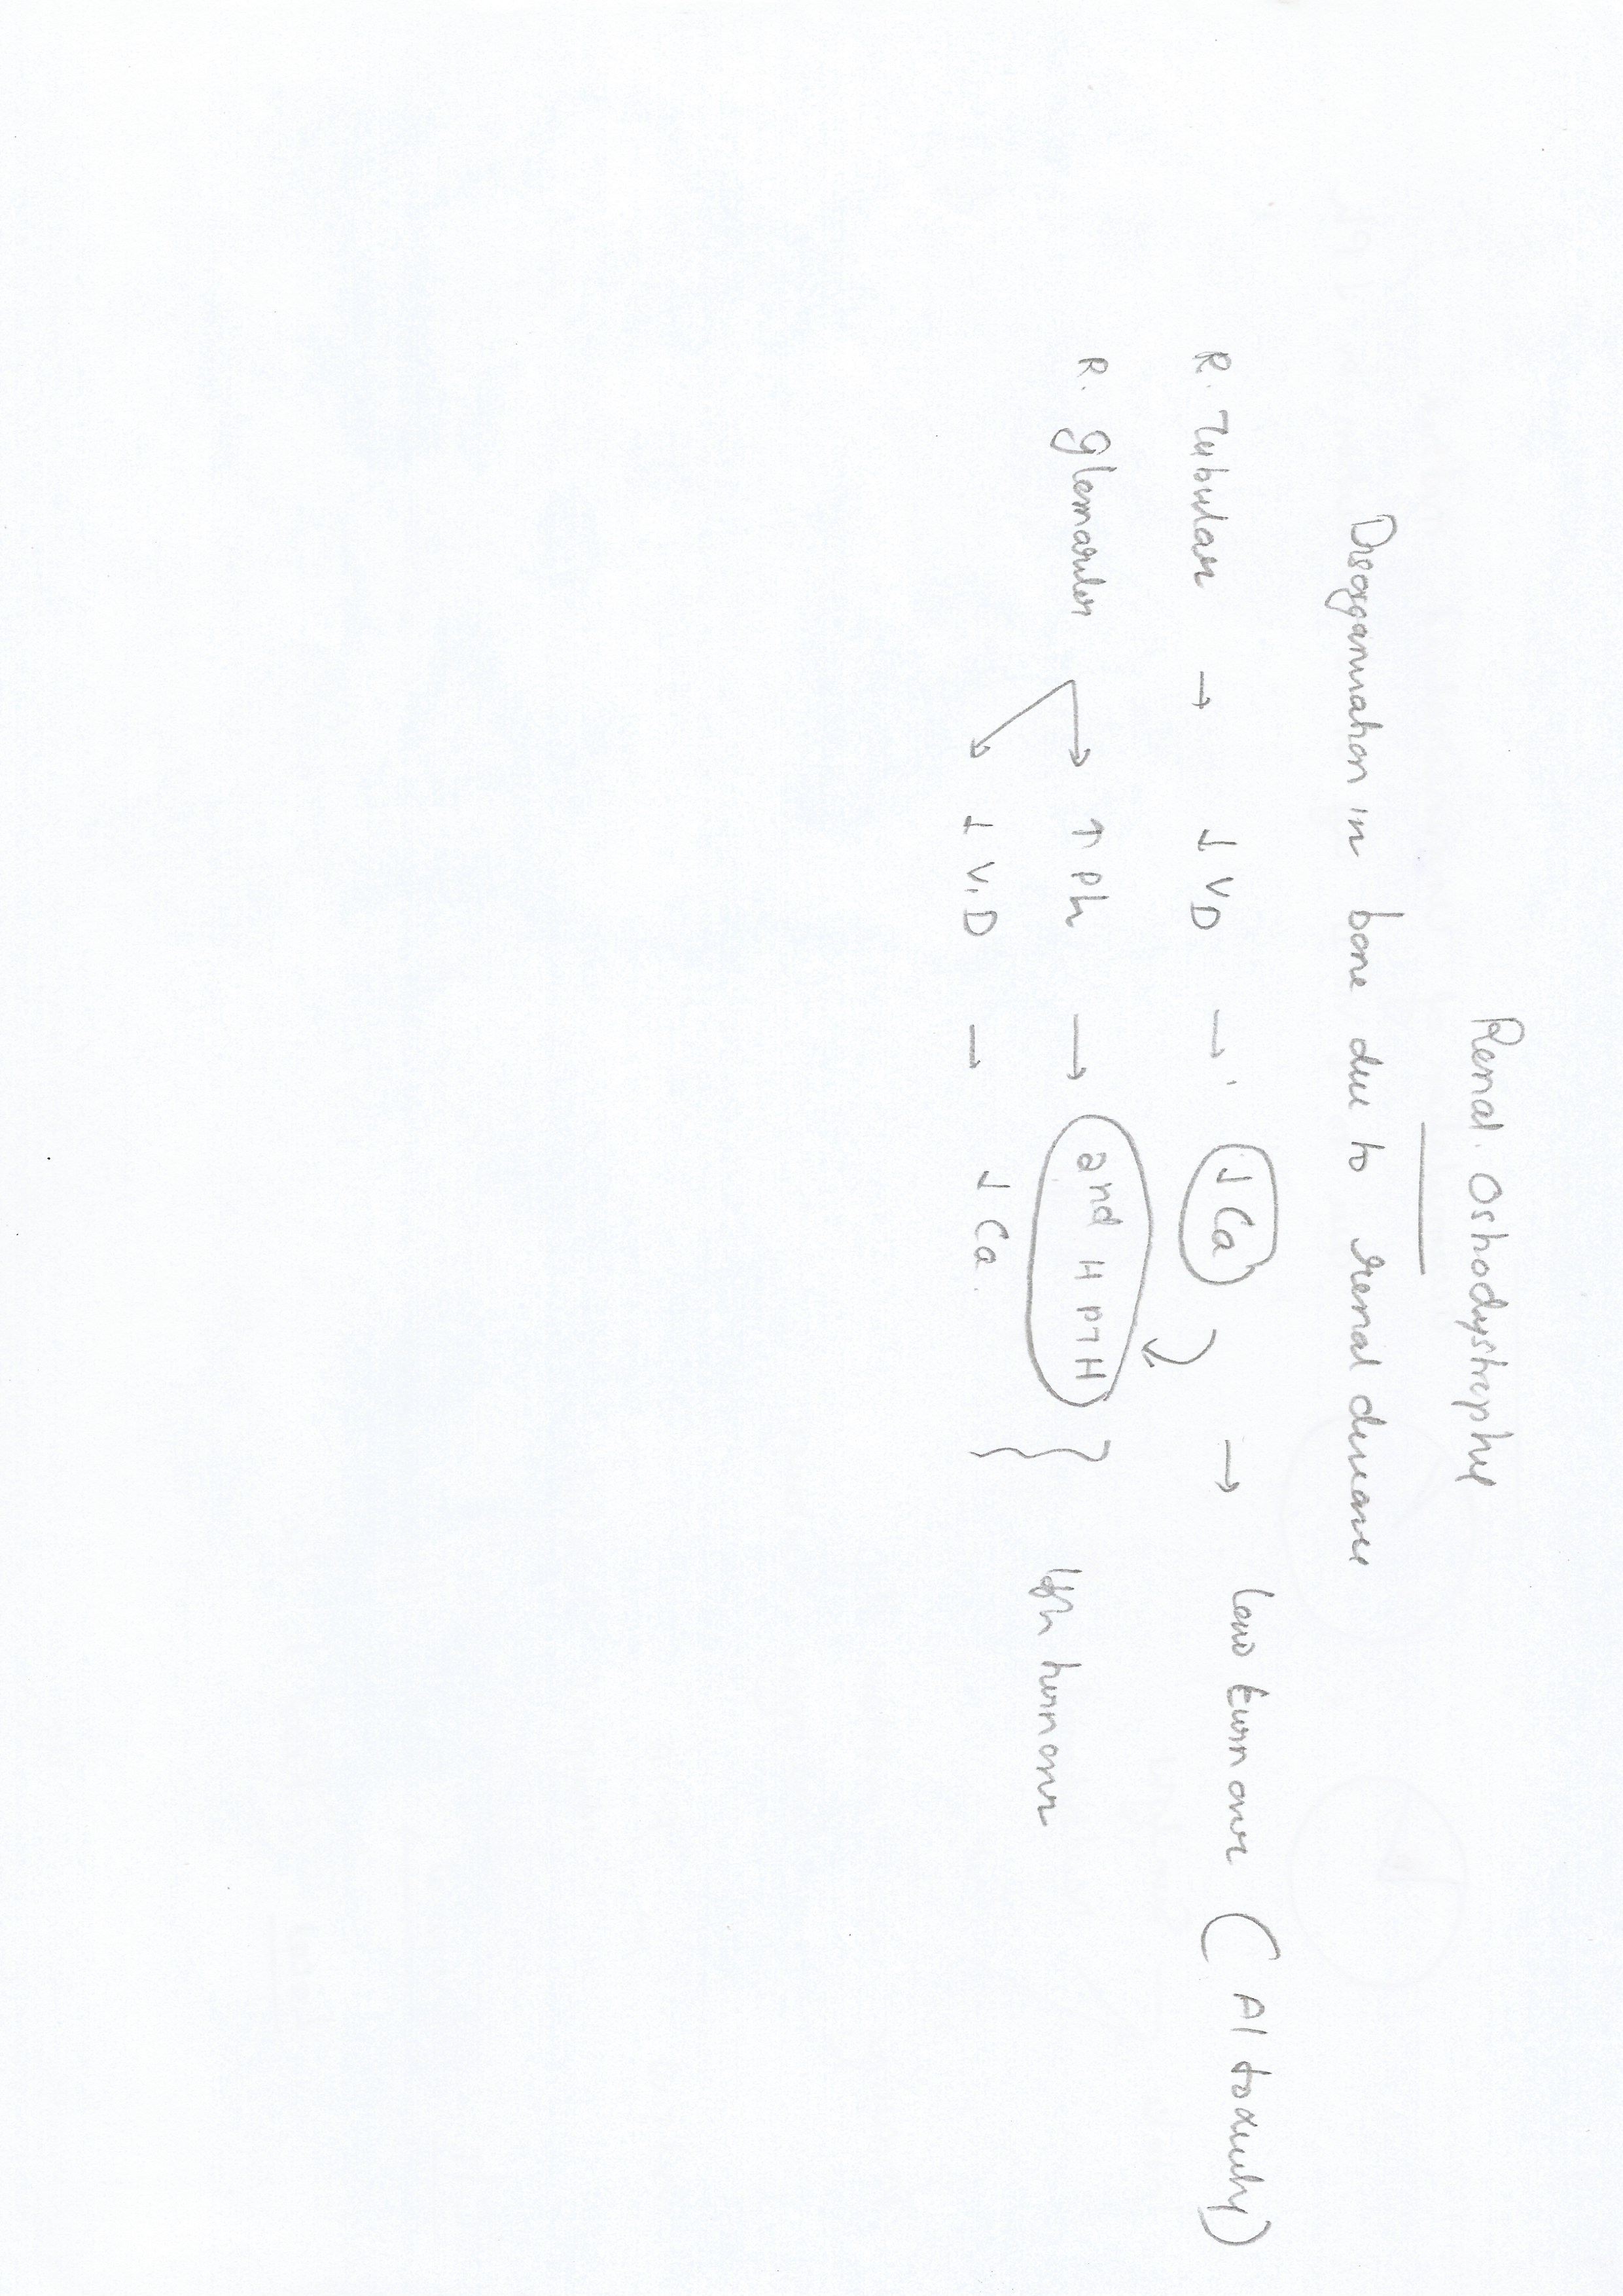 Renal Osteodystrophy
Disorganisation in bone due to renal disease
R. Tubular → ↓ VD → ↓ Ca → low turn over ( Al toxicity)
R. Glomerular → ↑ Ph → 2nd H PTH } High turn over
↓ V.D → ↓ Ca.